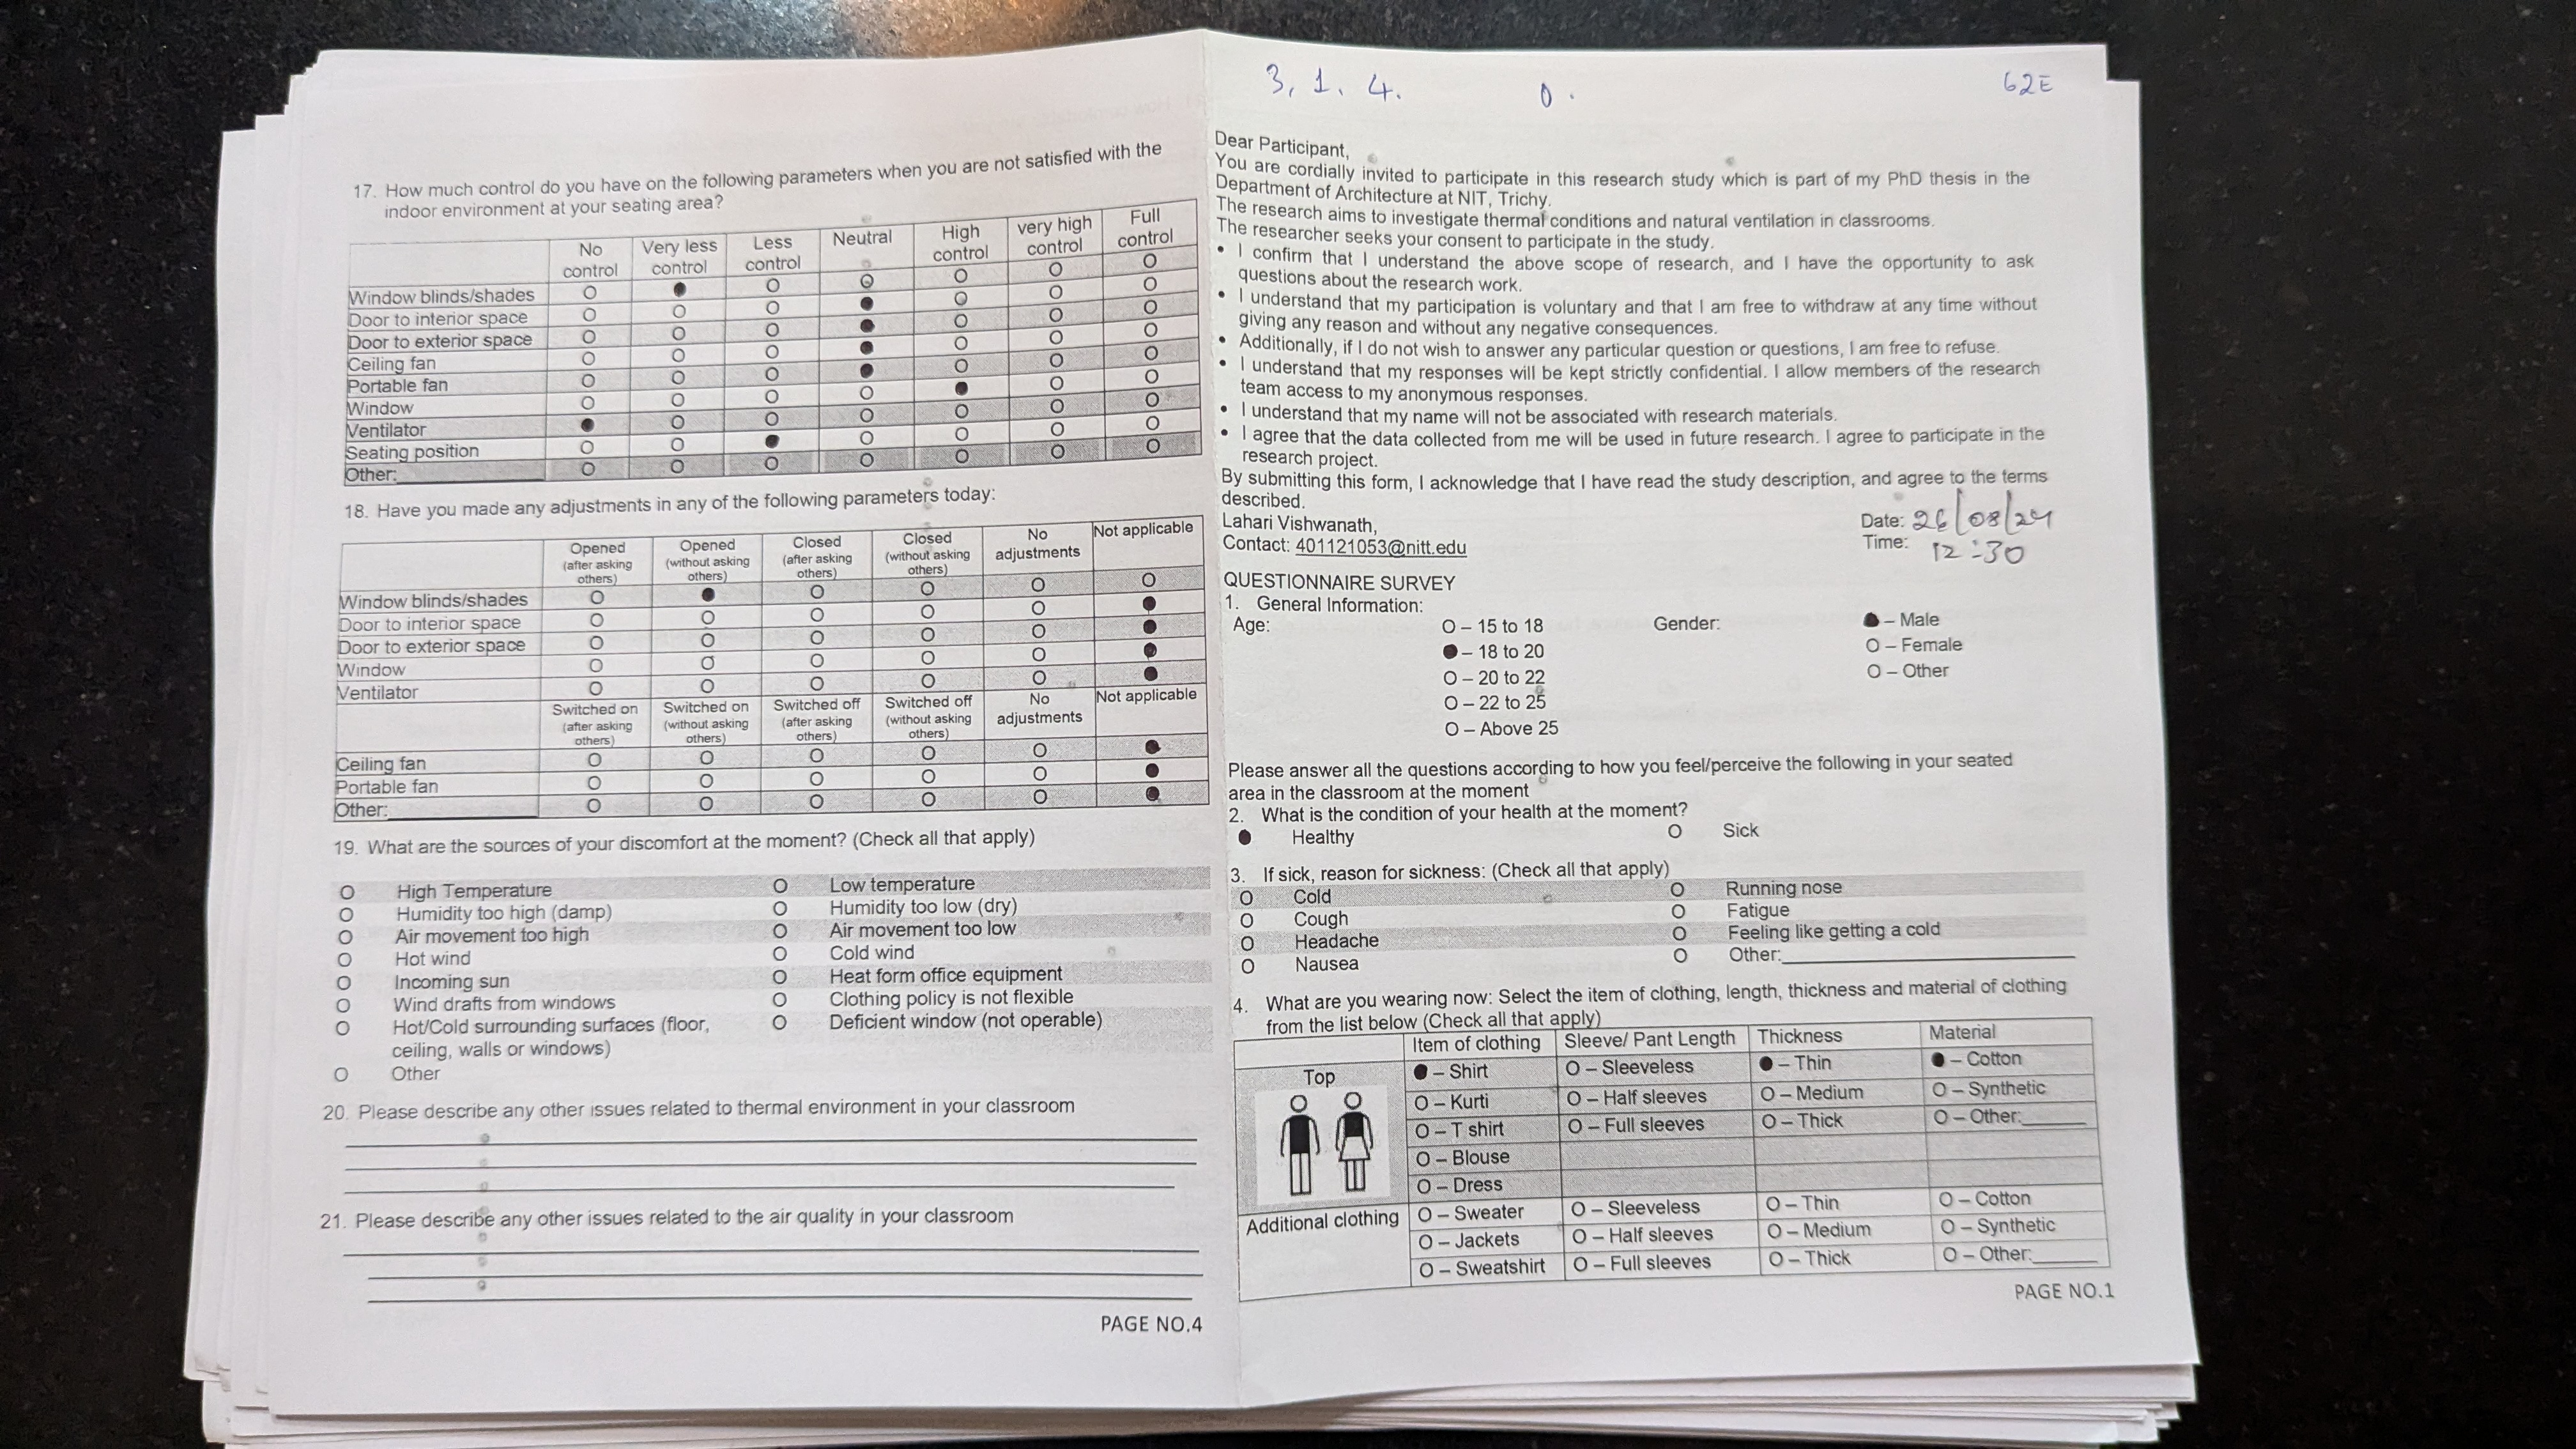 17. How much control do you have on the following parameters when you are not satisfied with the
indoor environment at your seating area?
No control Very less control Less control Neutral High control very high control Full control
Window blinds/shades O ● O O O O O
Door to interior space O O O ● O O O
Door to exterior space O O O ● O O O
Ceiling fan O O O ● O O O
Portable fan O O O ● O O O
Window O O O O ● O O
Ventilator ● O O O O O O
Seating position O O ● O O O O
Other: O O O O O O O
18. Have you made any adjustments in any of the following parameters today:
Opened (after asking others) Opened (without asking others) Closed (after asking others) Closed (without asking others) No adjustments Not applicable
Window blinds/shades O ● O O O O
Door to interior space O O O O O ●
Door to exterior space O O O O O ●
Window O O O O O ●
Ventilator O O O O O ●
Switched on (after asking others) Switched on (without asking others) Switched off (after asking others) Switched off (without asking others) No adjustments Not applicable
Ceiling fan O O O O O ●
Portable fan O O O O O ●
Other: O O O O O ●
19. What are the sources of your discomfort at the moment? (Check all that apply)
O High Temperature O Low temperature
O Humidity too high (damp) O Humidity too low (dry)
O Air movement too high O Air movement too low
O Hot wind O Cold wind
O Incoming sun O Heat form office equipment
O Wind drafts from windows O Clothing policy is not flexible
O Hot/Cold surrounding surfaces (floor, O Deficient window (not operable)
ceiling, walls or windows)
O Other
20. Please describe any other issues related to thermal environment in your classroom
21. Please describe any other issues related to the air quality in your classroom
PAGE NO.4
3, 1. 4. 0. 62E
Dear Participant,
You are cordially invited to participate in this research study which is part of my PhD thesis in the
Department of Architecture at NIT, Trichy.
The research aims to investigate thermal conditions and natural ventilation in classrooms.
The researcher seeks your consent to participate in the study.
• I confirm that I understand the above scope of research, and I have the opportunity to ask
questions about the research work.
• I understand that my participation is voluntary and that I am free to withdraw at any time without
giving any reason and without any negative consequences.
• Additionally, if I do not wish to answer any particular question or questions, I am free to refuse.
• I understand that my responses will be kept strictly confidential. I allow members of the research
team access to my anonymous responses.
• I understand that my name will not be associated with research materials.
• I agree that the data collected from me will be used in future research. I agree to participate in the
research project.
By submitting this form, I acknowledge that I have read the study description, and agree to the terms
described.
Lahari Vishwanath, Date: 26/08/24
Contact: 401121053@nitt.edu Time: 12:30
QUESTIONNAIRE SURVEY
1. General Information:
Age: O – 15 to 18 Gender: ● – Male
● – 18 to 20 O – Female
O – 20 to 22 O – Other
O – 22 to 25
O – Above 25
Please answer all the questions according to how you feel/perceive the following in your seated
area in the classroom at the moment
2. What is the condition of your health at the moment?
● Healthy O Sick
3. If sick, reason for sickness: (Check all that apply)
O Cold O Running nose
O Cough O Fatigue
O Headache O Feeling like getting a cold
O Nausea O Other:
4. What are you wearing now: Select the item of clothing, length, thickness and material of clothing
from the list below (Check all that apply)
Item of clothing Sleeve/ Pant Length Thickness Material
Top ● – Shirt O – Sleeveless ● – Thin ● – Cotton
O – Kurti O – Half sleeves O – Medium O – Synthetic
O – T shirt O – Full sleeves O – Thick O – Other:
O – Blouse
O – Dress
Additional clothing O – Sweater O – Sleeveless O – Thin O – Cotton
O – Jackets O – Half sleeves O – Medium O – Synthetic
O – Sweatshirt O – Full sleeves O – Thick O – Other:
PAGE NO.1